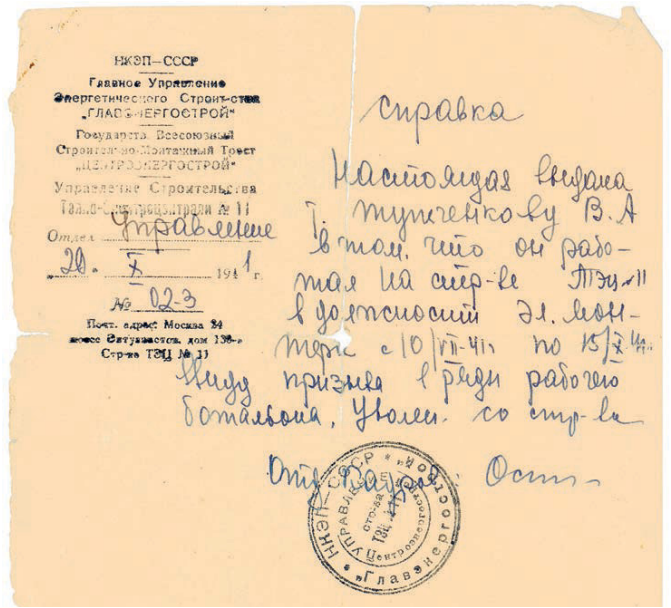 НКЭП—СССР
Главное Управление
Энергетического Строит-ства
„ГЛАВЭНЕРГОСТРОЙ“
Государств. Всесоюзный
Строительно-Монтажный Трест
„ЦЕНТРОЭНЕРГОСТРОЙ“
Управление Строительства
Тепло-Электроцентрали № 11
Отдел Управление
„20“ X 1941 г.
№ 02-3
Почт. адрес: Москва 24
шоссе Энтузиастов, дом
Стр-ва ТЭЦ № 11
Справка
Настоящая выдана
т. В. А
в том, что он рабо-
тал на стр-ве ТЭЦ-11
в должности Эл. мон-
тера с 10/VII-41г по 15/X
Ввиду призыва в ряды рабочего
батальона, Уволен со стр-ва
НКЭП—СССР • „Главэнергострой“ •
УПРАВЛЕНИЕ Центроэнергострой
стр-ва
ТЭЦ